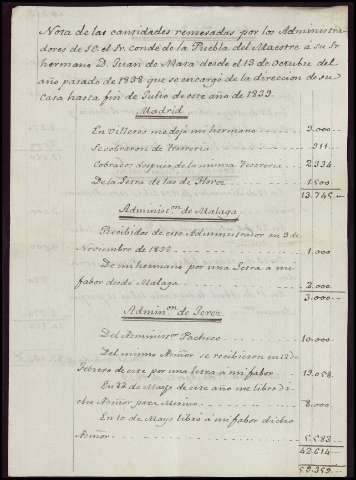 Nota de las cantidades remesadas por los Administra-
dores de SE. el Sr. conde de la Puebla del Maestre a su Sr.
hermano D. Juan de Mata desde el 13 de octubre del
año pasado de 1838 que se encargó de la direccion de su
Casa hasta fin de Julio de este año de 1839.
Madrid
En villetes me dejó mi hermano 9.000
Se cobraron de Tesoreria 911
Cobrados despues de la misma Tesoreria 2.334
De la Letra de las de Florez 1.500
13.745
Administ.on de Malaga
Recibidos de este Administrador en 9 de
Noviembre de 1838 1.000
De mi hermano por una Letra a mi
fabor desde Malaga 2.000
3.000
Admin.on de Jerez
Del Administ.or Pacheco 10.000
Del mismo Admor se recibieron en 12 de
Febrero de este por una letra a mi fabor 19.058
En 22 de Mayo de este año me libró di-
cho Admor para 8.000
En 10 de Mayo libró a mi fabor dicho
Admor 5.583
42.614
59.359